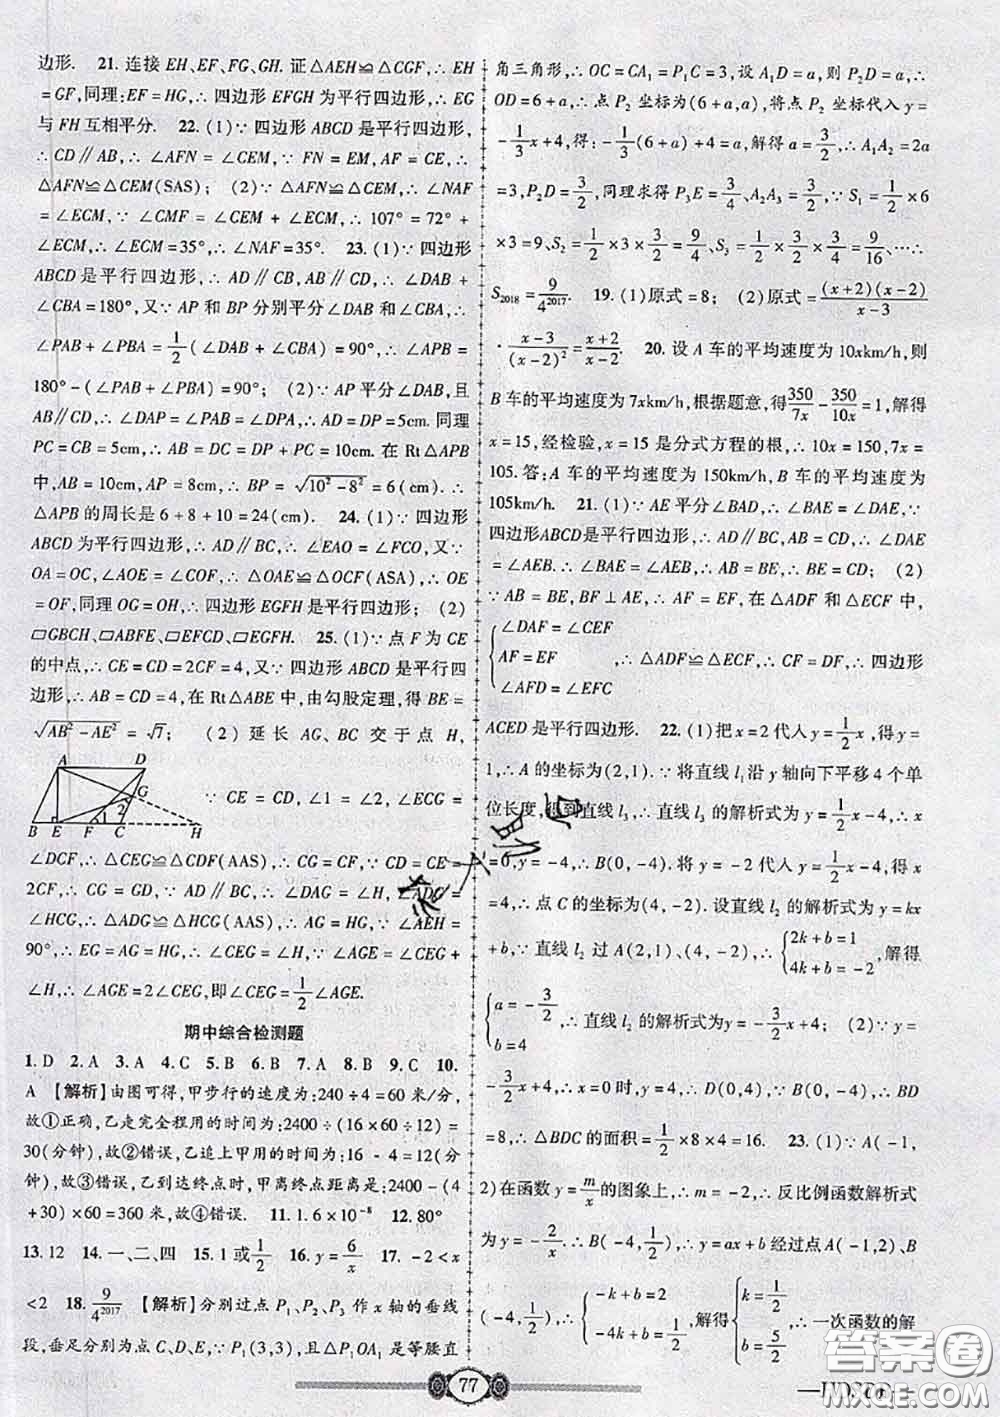 边形. 21. 连接 EH、EF、FG、GH. 证△AEH≌△CGF,∴EH
=GF,同理:EF=HG,∴四边形 EFGH 为平行四边形,∴EG
与 FH 互相平分. 22. (1)∵四边形 ABCD 是平行四边形,
∴CD∥AB,∴∠AFN=∠CEM,∵FN=EM,AF=CE,∴
△AFN≌△CEM(SAS); (2)∵△AFN≌△CEM,∴∠NAF
=∠ECM,∵∠CMF=∠CEM+∠ECM,∴107°=72°+
∠ECM,∴∠ECM=35°,∴∠NAF=35°. 23. (1)∵四边形
ABCD 是平行四边形,∴AD∥CB,AB∥CD,∴∠DAB+
∠CBA=180°,又∵AP 和 BP 分别平分∠DAB 和∠CBA,∴
∠PAB+∠PBA=1/2(∠DAB+∠CBA)=90°,∴∠APB=
180°-(∠PAB+∠PBA)=90°; (2)∵AP 平分∠DAB,且
AB∥CD,∴∠DAP=∠PAB=∠DPA,∴AD=DP=5cm. 同理
PC=CB=5cm,∴AB=DC=DP+PC=10cm. 在 Rt△APB
中,AB=10cm,AP=8cm,∴BP=√(10²-8²)=6(cm). ∴
△APB 的周长是 6+8+10=24(cm). 24. (1)∵四边形
ABCD 为平行四边形,∴AD∥BC,∴∠EAO=∠FCO,又∵
OA=OC,∠AOE=∠COF,∴△OAE≌△OCF(ASA),∴OE
=OF,同理 OG=OH,∴四边形 EGFH 是平行四边形; (2)
▱GBCH、▱ABFE、▱EFCD、▱EGFH. 25. (1)∵点 F 为 CE
的中点,∴CE=CD=2CF=4,又∵四边形 ABCD 是平行四
边形,∴AB=CD=4,在 Rt△ABE 中,由勾股定理,得 BE=
√(AB²-AE²)=√7; (2)延长 AG、BC 交于点 H,
A D G 2 1 B E F C H
∵CE=CD,∠1=∠2,∠ECG=
∠DCF,∴△CEG≌△CDF(AAS),∴CG=CF,∵CD=CE=
2CF,∴CD=2CG,∵AD∥BC,∴∠DAG=∠H,∠ADG=
∠HCG,∴△ADG≌△HCG(AAS),∴AG=HG,∵∠AEH=
90°,∴EG=AG=HG,∴∠CEG=∠H,∵∠AGE=∠CEG+
∠H,∴∠AGE=2∠CEG,即∠CEG=1/2∠AGE.
期中综合检测题
1. D 2. A 3. A 4. C 5. B 6. B 7. A 8. B 9. C 10.
A 【解析】由图可得,甲步行的速度为:240÷4=60 米/分,
故①正确,乙走完全程用的时间为:2400÷(16×60÷12)=
30(分钟),故②错误,乙追上甲用的时间为:16-4=12(分
钟),故③错误,乙到达终点时,甲离终点距离是:2400-(4
+30)×60=360 米,故④错误. 11. 1.6×10⁻⁸ 12. 80°
13. 12 14. 一、二、四 15. 1 或 1/2 16. y=6/x 17. -2<x
<2 18. 9/4²⁰¹⁷ 【解析】分别过点 P₁、P₂、P₃ 作 x 轴的垂线
段,垂足分别为点 C、D、E,∵P₁(3,3),且△P₁OA₁ 是等腰直
角三角形,∴OC=CA₁=P₁C=3,设 A₁D=a,则 P₂D=a,∴
OD=6+a,∴点 P₂ 坐标为(6+a,a),将点 P₂ 坐标代入 y=
-1/3x+4,得:-1/3(6+a)+4=a,解得 a=3/2,∴A₁A₂=2a
=3,P₂D=3/2,同理求得 P₃E=3/4、A₂A₃=3/2,∵S₁=1/2×6
×3=9、S₂=1/2×3×3/2=9/4、S₃=1/2×3/2×3/4=9/16、…∴
S₂₀₁₈=9/4²⁰¹⁷. 19. (1)原式=8; (2)原式=(x+2)(x-2)/(x-3)
·(x-3)/(x-2)²=(x+2)/(x-2). 20. 设 A 车的平均速度为 10xkm/h,则
B 车的平均速度为 7xkm/h,根据题意,得 350/7x-350/10x=1,解得
x=15,经检验,x=15 是分式方程的根,∴10x=150,7x=
105. 答:A 车的平均速度为 150km/h,B 车的平均速度为
105km/h. 21. (1)∵AE 平分∠BAD,∴∠BAE=∠DAE,∵
四边形ABCD是平行四边形,∴AD∥BC,AB=CD,∴∠DAE
=∠AEB. ∴∠BAE=∠AEB,∴AB=BE,∴BE=CD; (2)
∵AB=BE,BF⊥AE,∴AF=EF,在△ADF 和△ECF 中,
{∠DAF=∠CEF
AF=EF ,∴△ADF≌△ECF,∴CF=DF,∴四边形
∠AFD=∠EFC
ACED 是平行四边形. 22. (1)把 x=2 代入 y=1/2x,得 y=
1,∴A 的坐标为(2,1). ∵将直线 l₁ 沿 y 轴向下平移 4 个单
位长度,得到直线 l₃,∴直线 l₃ 的解析式为 y=1/2x-4,∴x
=0,y=-4,∴B(0,-4). 将 y=-2 代入 y=1/2x-4,得 x
=4,∴点 C 的坐标为(4,-2). 设直线 l₂ 的解析式为 y=kx
+b,∵直线 l₂ 过 A(2,1)、(4,-2),∴{2k+b=1 4k+b=-2,解得
{a=-3/2 b=4,∴直线 l₂ 的解析式为y=-3/2x+4; (2)∵y=
-3/2x+4,∴x=0 时,y=4,∴D(0,4). ∵B(0,-4),∴BD
=8,∴△BDC 的面积=1/2×8×4=16. 23. (1)∵A(-1,
2)在函数 y=m/x 的图象上,∴m=-2,∴反比例函数解析式
为 y=-2/x,∴B(-4,1/2),∵y=ax+b 经过点 A(-1,2)、B
(-4,1/2),∴{-k+b=2 -4k+b=1/2,解得{k=1/2 b=5/2,∴一次函数的解
77
答案圈